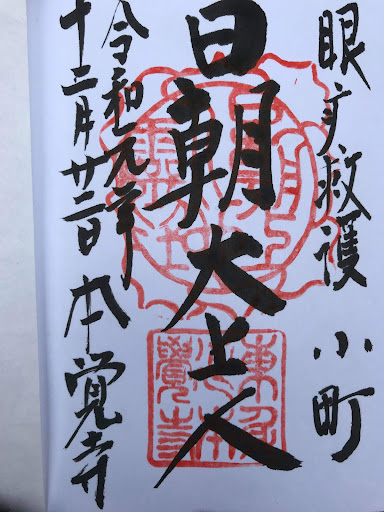 眼疒救護 小町
日朝大上人
令和元年
十二月廿二日 本覚寺
東身
延本
覺寺